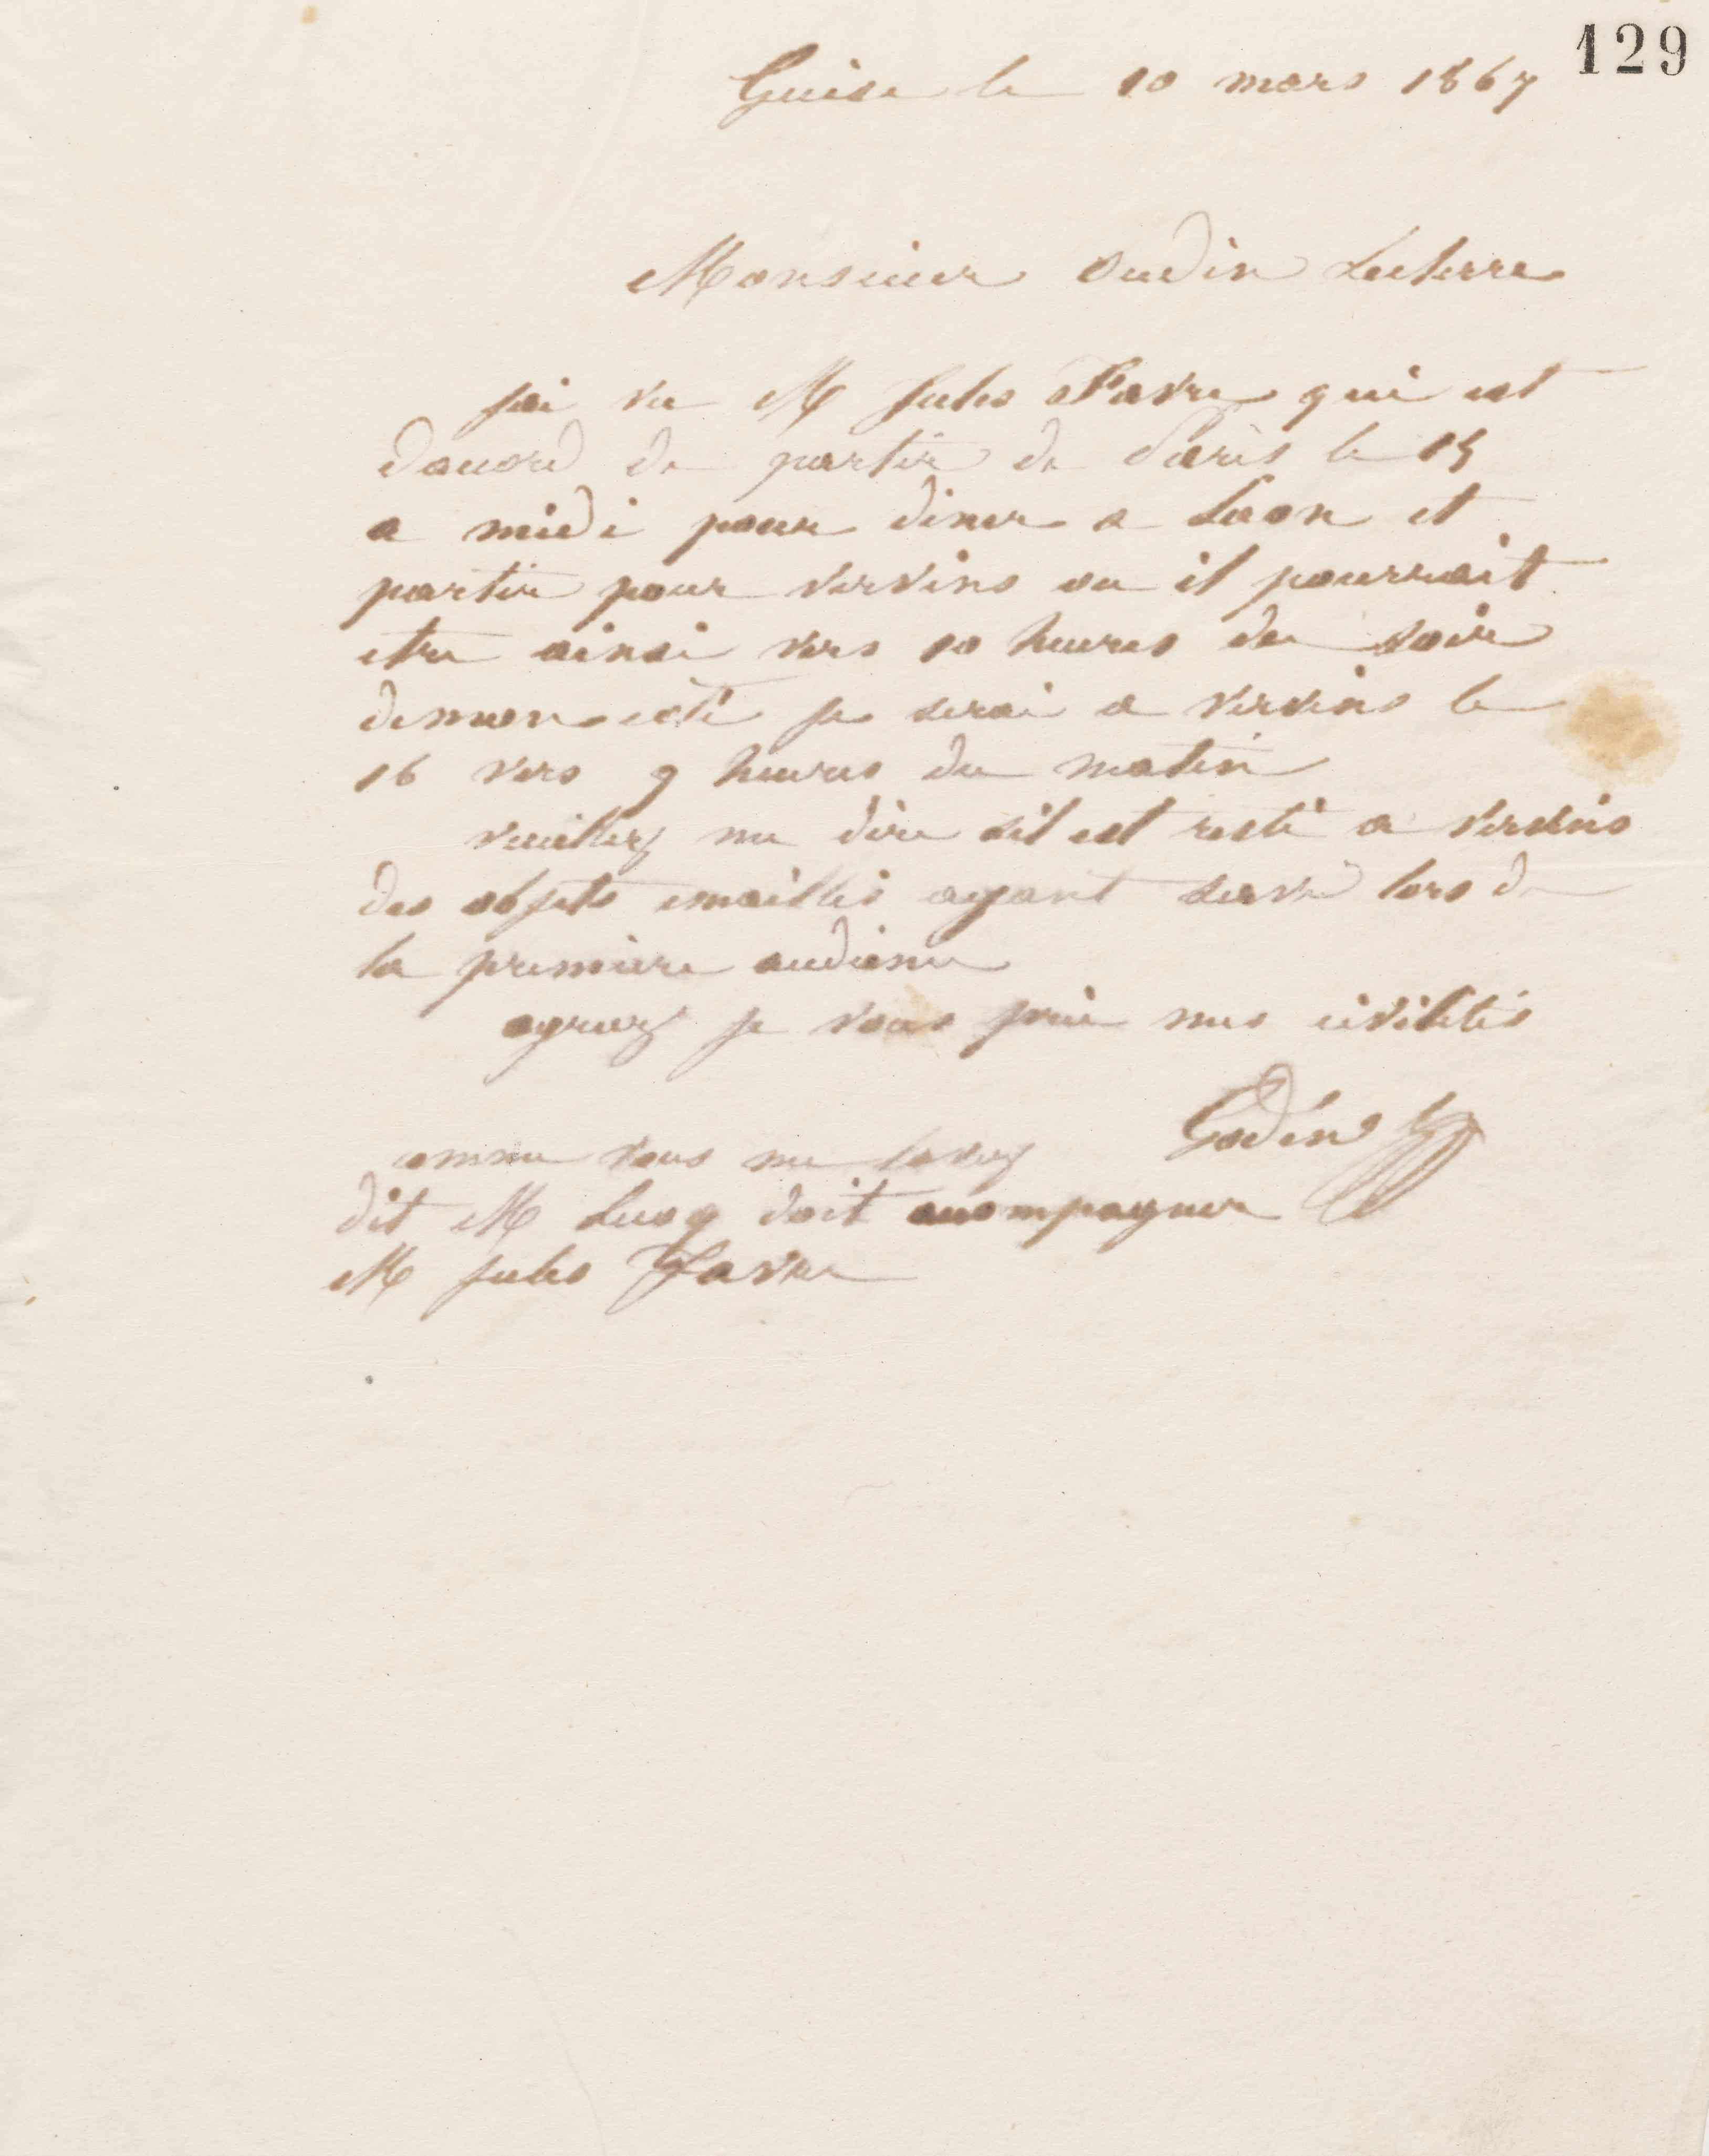 129
Guise le 10 mars 1867
Monsieur Oudin Leclerre
jai vu M Jules Favre qui est
daccord de partir de Paris le 15
a midi pour diner a Laon et
partir pour vervins ou il pourrait
etre ainsi vers 10 heures du soir
demon coté je serai a vervins le
16 vers 9 heures du matin
veuillez me dire sil est resté a vervins
des objets emaillés ayant servi lors de
la premiere audience
agreez je vous prie mes civilités
Godin
comme vous me lavez
dit M Lecoq doit accompagner
M Jules Favre